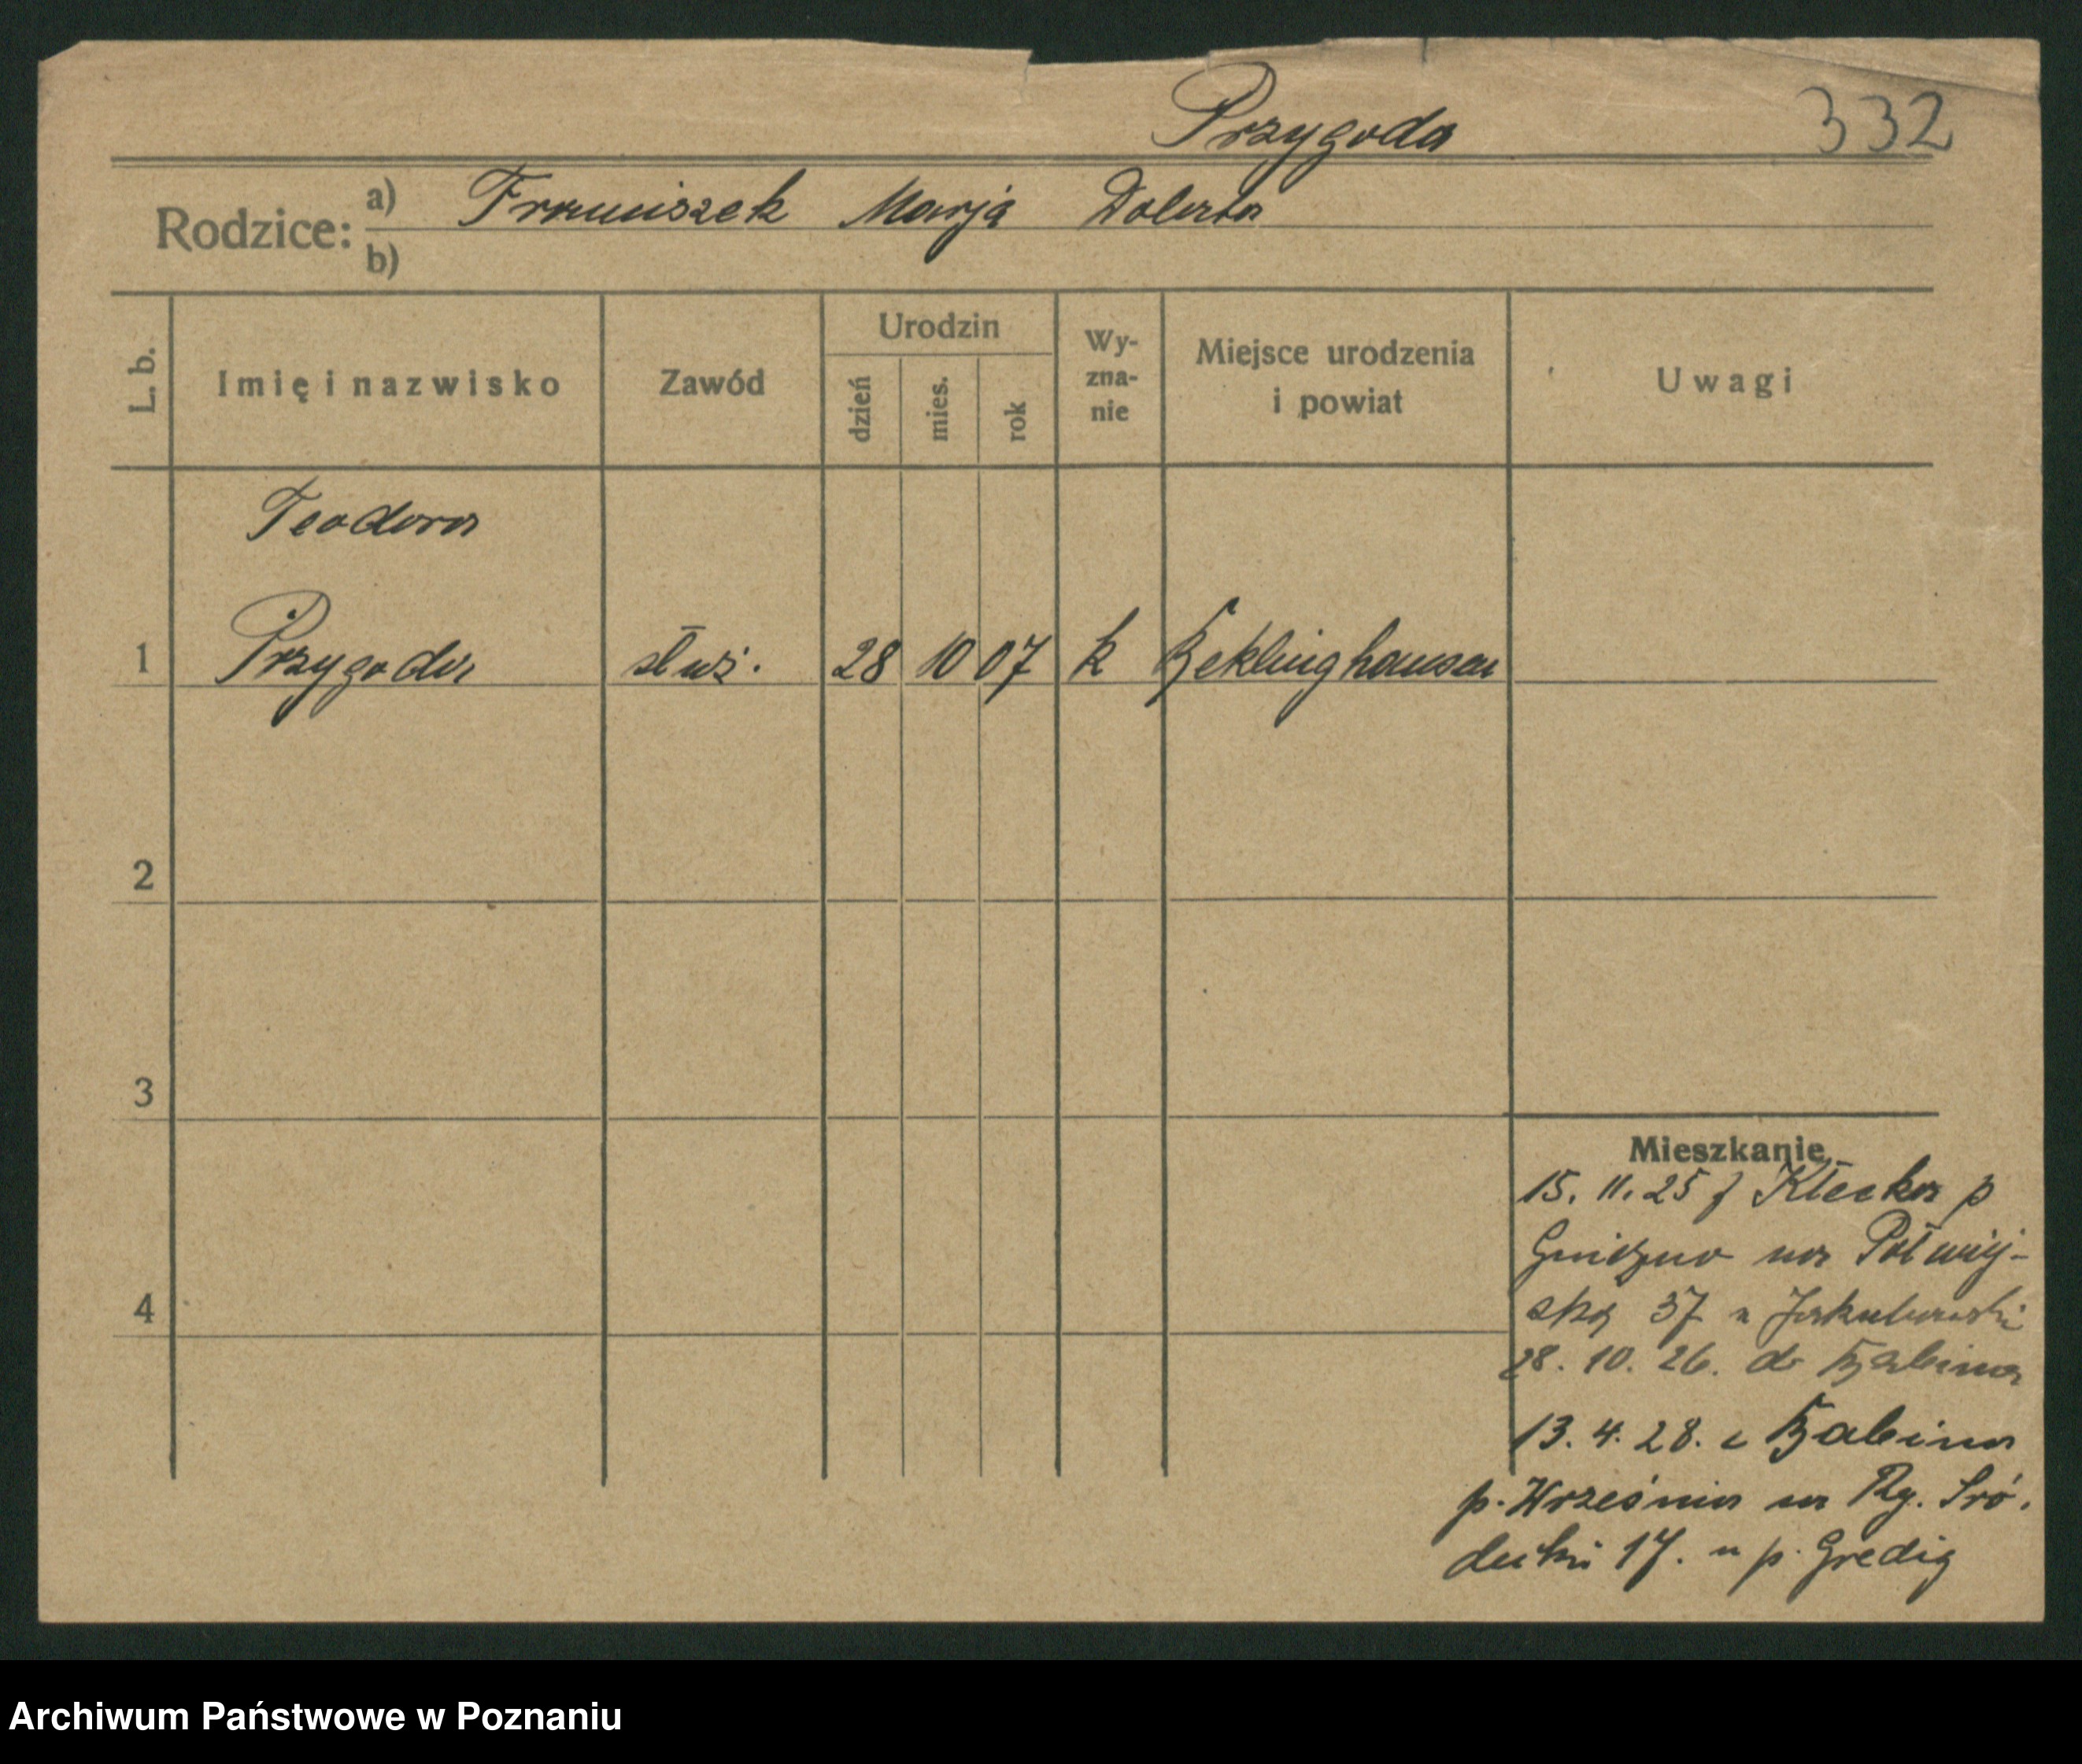 Przygoda 332
Rodzice: a) Franciszek Marja Dolata
b)
L. b. Imię i nazwisko Zawód Urodzin dzień mies. rok Wy-zna-nie Miejsce urodzenia i powiat Uwagi
Teodora
1 Przygoda służ. 28 10 07 k Reklinghausen
2
3
4
Mieszkanie
15. 11. 25 z Kłecka p
Gniezno na Półwiej-
ską 37 u Jakubowski
28. 10. 26. do Babina
13. 4. 28. z Babina
p. Września na Ry. Śró.
decki 17. u p. Gredig
Archiwum Państwowe w Poznaniu